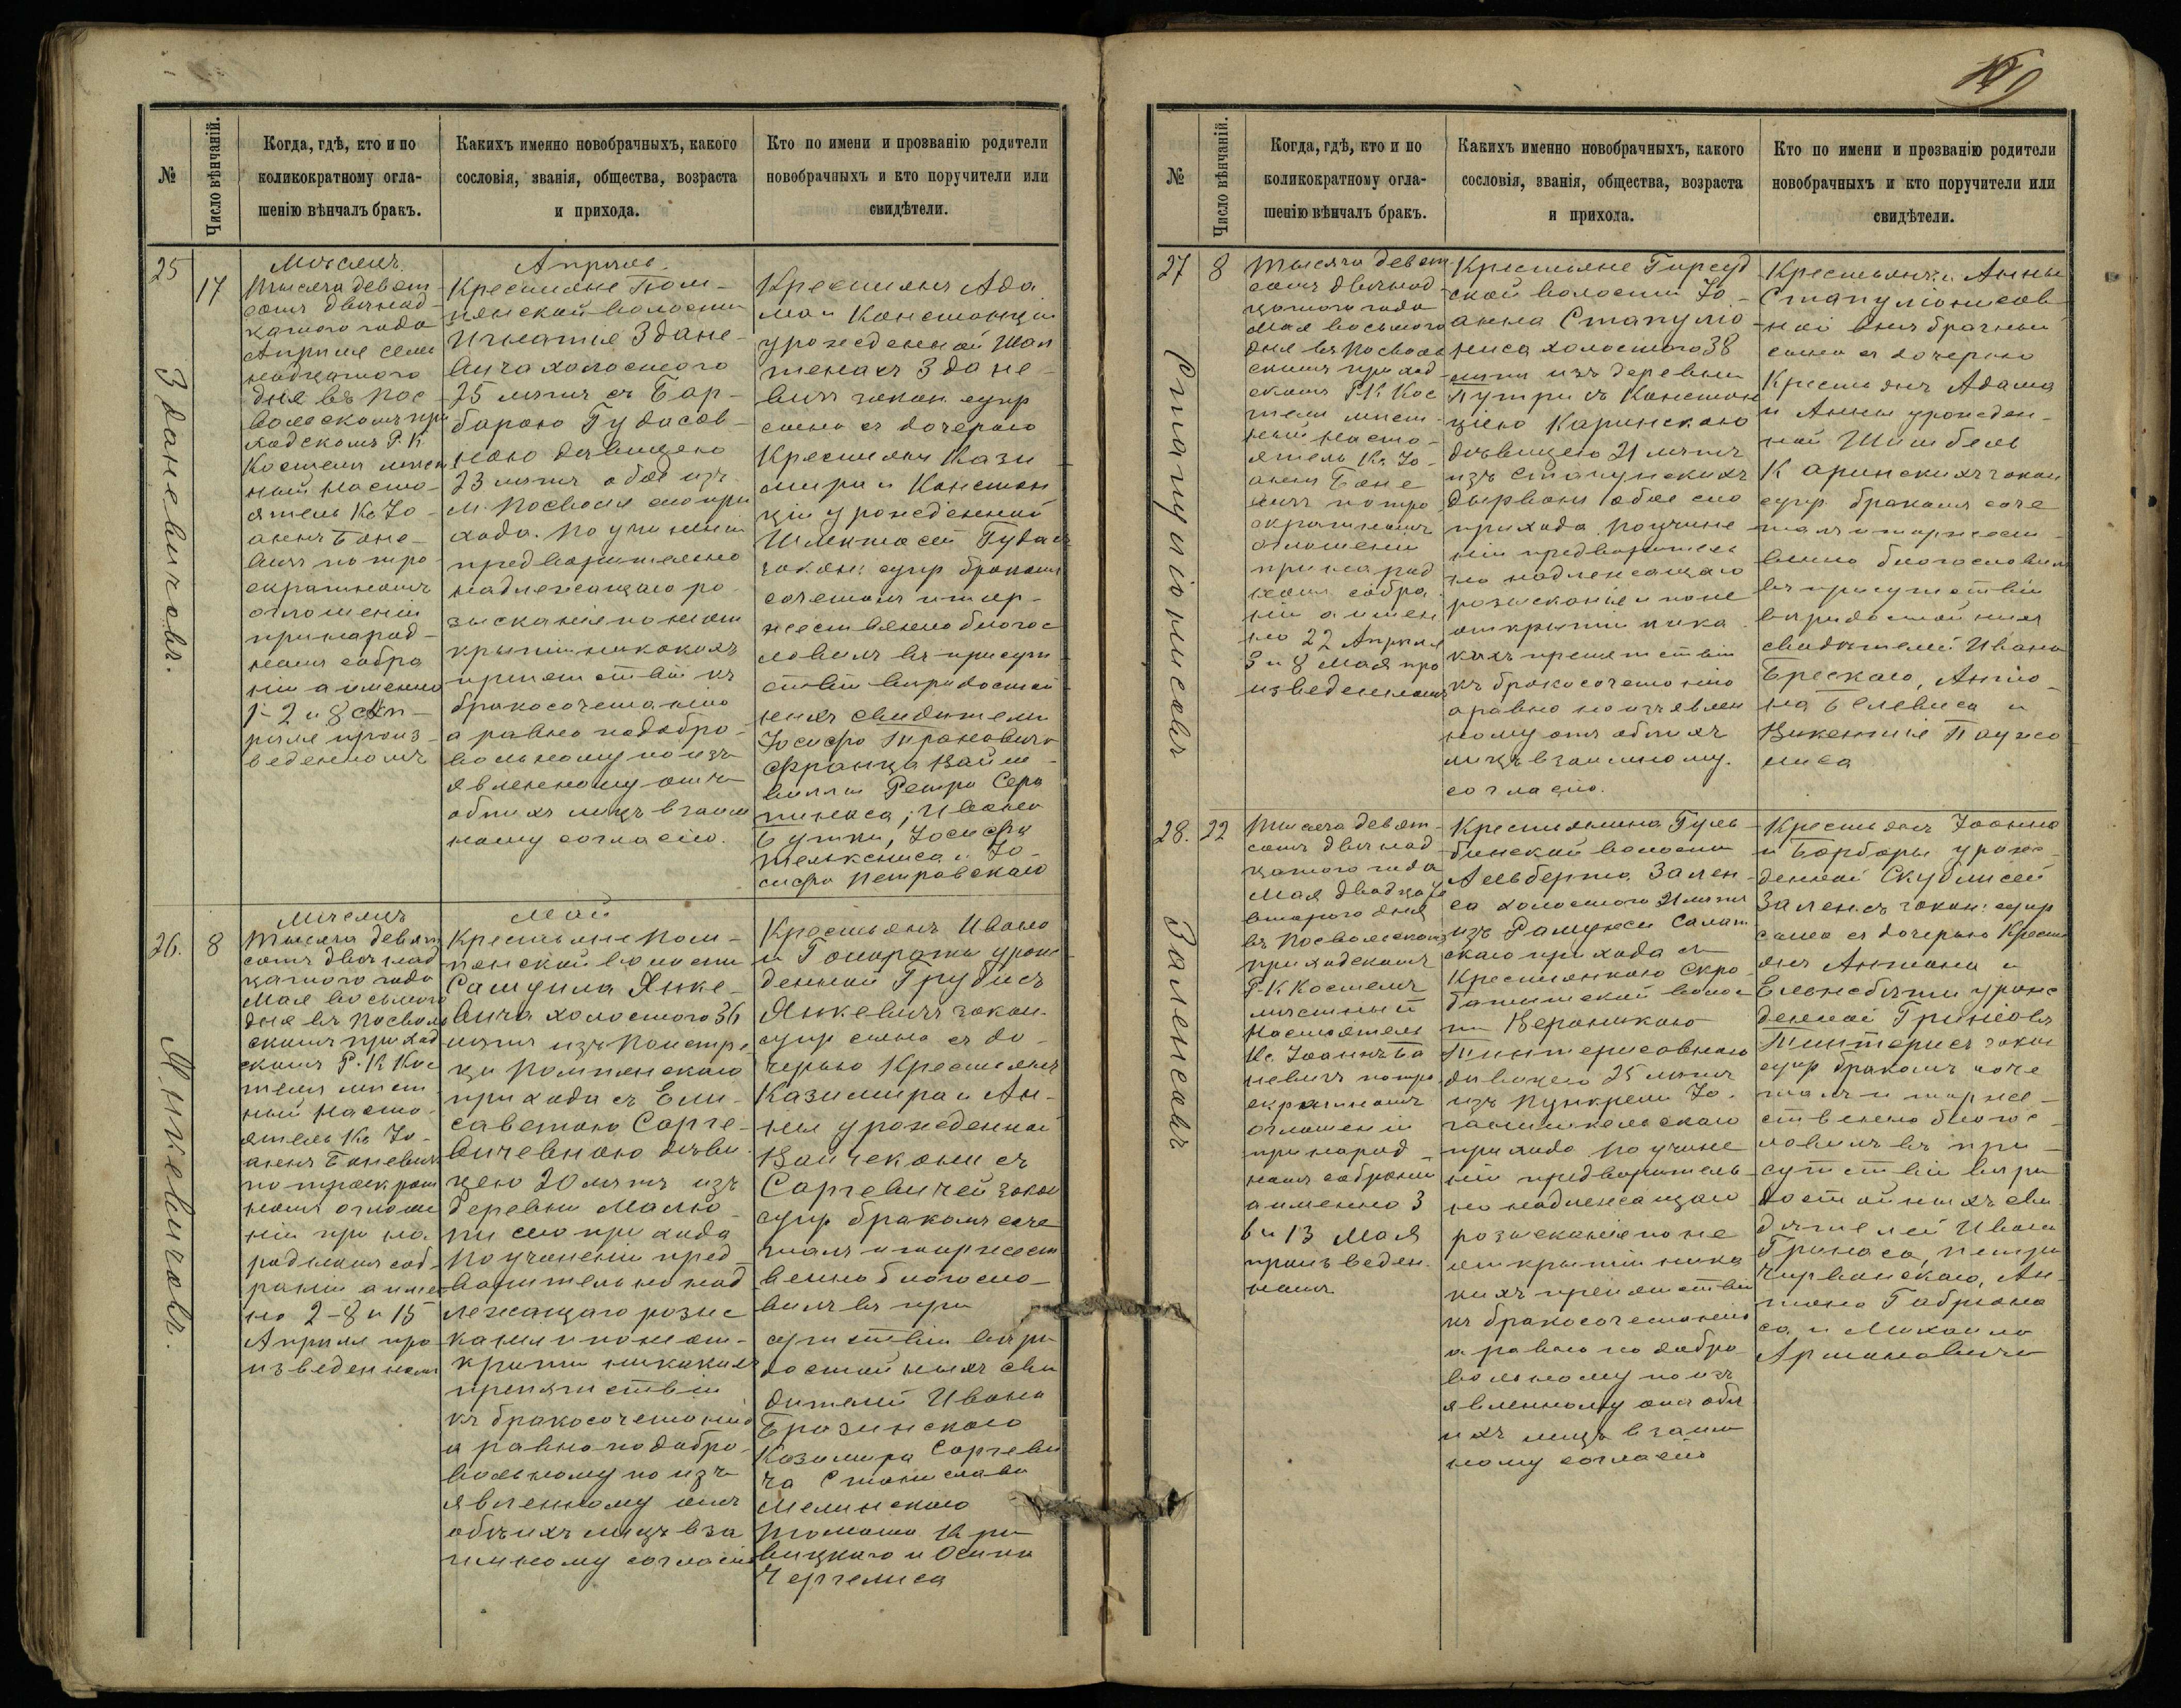 149
№
Число вѣнчаній.
Когда, гдѣ, кто и по
коликократному огла-
шенію вѣнчалъ бракъ.
Какихъ именно новобрачныхъ, какого
сословія, званія, общества, возраста
и прихода.
Кто по имени и прозванію родители
новобрачныхъ и кто поручители или
свидѣтели.
25
17
Здановичовъ.
Мѣсяцъ
Тысяча девят
сотъ двѣнад-
цатого года
Апрѣля сем
надцатого
дня въ Пос-
вольскомъ при
ходскомъ Р. К.
Костелѣ мѣст
ный насто-
ятель Кс Іо-
аннъ Боне-
вичъ по тро-
екратномъ
оглошеніи
при народ-
номъ собра
ніи а именно
1-2 и 8 Ап-
рѣля произ-
веденномъ
Апрѣль.
Крестьяне Пом-
пянской волости
Игнатія Здане-
вича холостого
25 лѣтъ съ Бар-
барою Гудасов-
ною дѣвицею
23 лѣтъ обое изъ
м. Посволя сего при
хода. По учиненіи
предварительно
надлежащаго ро-
зысканія по неот
крытіи никакихъ
препятствій къ
бракосочетанію
а равно по добро-
вольному по изъ
явленному отъ
обѣихъ лицъ взаим
ному согласію.
Крестьянъ Ада
ма и Констанціи
урожденной Шап
Здане-
вичъ закон. супр
сына съ дочерью
Крестьянъ Кази
мира и Констан
ціи урожденной
Гудасъ
закон: супр бракомъ
сочеталъ и тор-
жественно благос
ловилъ въ присут
ствіи вѣродостой
ныхъ свидѣтели
Іосифа
Франца
Петра Сера
пинаса, Ивана
Бутки, Іосифа
Тельксниса и Іо-
сифа Петровскаго
26.
8
Янкевичовъ.
Мѣсяцъ
Тысяча девят
сотъ двѣнад
цатого года
Мая восьмого
дня въ Посволь
скомъ приход
скомъ Р. К Кос
телѣ мѣст
ный насто-
ятель Кс Іо-
аннъ Боневичъ
по троекрат
номъ оглоше
ніи при на-
родномъ соб-
раніи а имен
но 2-8 и 15
Апрѣля про
изведенномъ
Май
Крестьяне Пом-
пянской волости
Самуила Янке-
вича холостого 36
лѣтъ изъ
Помпянскаго
прихода съ Ели-
саветою Сорге-
вичевною дѣви
цею 20 лѣтъ изъ
деревни Малю-
пи сего прихода
По учиненіи пред
варительно над
лежащаго розыс
канія и по неот-
крытіи никакихъ
препятствій
къ бракосочетанію
а равно по добро-
вольному по изъ
явленному отъ
обѣихъ лицъ вза
имному согласію
Крестьянъ Ивана
и Гонораты урож
денной Грубисъ
Янкевичъ закон.
супр сына съ до-
черью Крестьянъ
Казимира и Ан-
ны урожденной
Соргевичей закон
супр бракомъ соче
талъ и торжест
венно благосло-
вилъ въ при
сутствіи вѣро
достойныхъ сви
дѣтелей Ивана
Бразинскаго
Казимира Соргеви
ча Станислава
Мелинскаго
Томаша Кри
вицкаго и Осипа
Чергелиса
№
Число вѣнчаній.
Когда, гдѣ, кто и по
коликократному огла-
шенію вѣнчалъ бракъ.
Какихъ именно новобрачныхъ, какого
сословія, званія, общества, возраста
и прихода.
Кто по имени и прозванію родители
новобрачныхъ и кто поручители или
свидѣтели.
27
8
Стапуліонисовъ
Тысяча девят
сотъ двѣнад
цатого года
Мая восьмого
дня въ Посволь
скомъ приход
скомъ Р.К. Кос
телѣ мѣст
ный насто-
ятель Кс. Іо-
аннъ Боне
вичъ по тро
екратномъ
оглошеніи
при народ
номъ собра
ніи а имен
но 22 Апрѣля
3 и 8 Мая про
изведенномъ
Крестьяне Гирсуд
ской волости Іо-
анна Стапулiо
ниса холостого 38
лѣтъ изъ деревни
Путри съ Констан
ціею Каринскою
дѣвицею 21 лѣтъ
изъ Стапунскихъ
дервони обое сего
прихода. По учине
ніи предваритель
но надлежащаго
розысканія и по не
открытіи ника
кихъ препятствій
къ бракосочетанію
а равно по изъявлен
ному отъ обѣихъ
лицъ взаимному
согласію.
Крестьянки Анны
Стапуліонисов
ной внѣбрачный
сына съ дочерью
Крестьянъ Адама
и Анны урожден-
ной Шимбель
Каринскихъ закон
супр. бракомъ соче
талъ и торжест-
венно благословилъ
въ присутствіи
вѣродостойныхъ
свидѣтелей Ивана
Брескаго, Анто-
на Белевиса и
Викентія Паужо
лиса
28.
22
Заленсовъ
Тысяча девят-
сотъ двѣнад
цатого года
Мая двадцать
второго дня
въ Посвольскомъ
приходскомъ
Р. К Костелѣ
мѣстный
Настоятель
Кс. Іоаннъ Бо
невичъ по тро
екратномъ
оглошеніи
при народ-
номъ собраніи
а именно 3
6 и 13 Мая
произведен
номъ
Крестьянина Гуль-
бинской волости
Альберта Зален-
са холостого 21 лѣтъ
изъ Рамукси Салат
скаго прихода съ
Крестьянкою Скро
ботишской волос
ти Вероникою
Тинтерисовною
дѣвицею 25 лѣтъ
изъ Пункрели Іо-
ганишкельскаго
прихода По учине
ніи предваритель
но надлежащаго
розысканія по не
открытіи ника
кихъ препятствій
къ бракосочетанію
а равно по добро
вольному по изъ
явленному отъ обѣ
ихъ лицъ взаим
ному согласію
Крестьянъ Іоанна
и Барбары урож-
денной Скублисей
Заленсъ закон: супр
сына съ дочерью Крест
янъ Антона и
Елисабеты урож
денной Гринювъ
Тинтерисъ закон
супр бракомъ соче
талъ и торже-
ственно благос-
ловилъ въ при-
сутствіи вѣро
достойныхъ сви
дѣтелей Ивана
Гринаса, Петра
Чирвонскаго, Ан-
тона Габрюна
са и Михаила
Армоновича